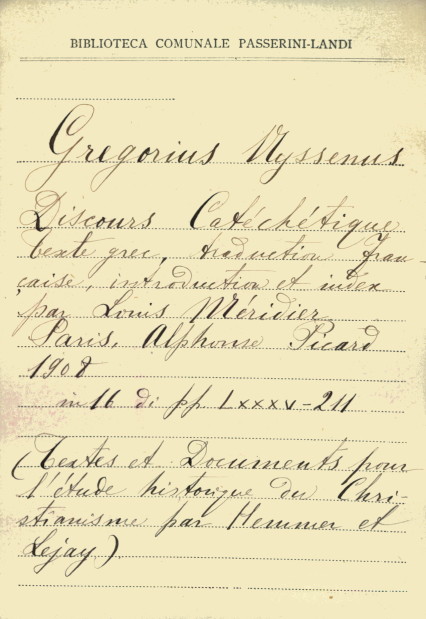 BIBLIOTECA COMUNALE PASSERINI-LANDI
Gregorius Nyssenus
Discours Catéchétique
texte grec, traduction fran-
çaise, introduction et index
par Louis Méridier
Paris, Alphonse Picard
1908
in 16 di pp LXXXV-211
(Textes et Documents pour
l'étude historique du Chri-
stianisme par Hemmer et
Lejay)